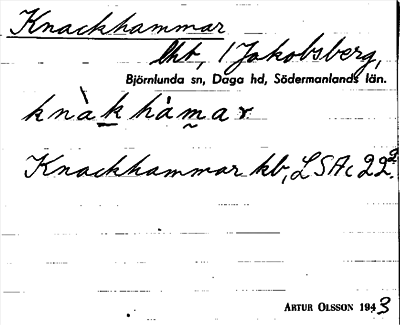 Knackhammar
lht, / Jakobsberg,
Björnlunda sn, Daga hd, Södermanlands län.
knàk hàmar
Knackhammar kb, LSAc 22²
ARTUR OLSSON 1943